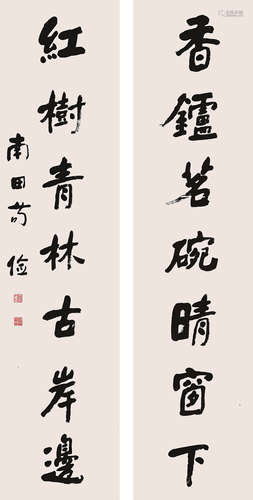 香鑪茗碗晴窗下
紅樹青林古岸邊
南田苟儉